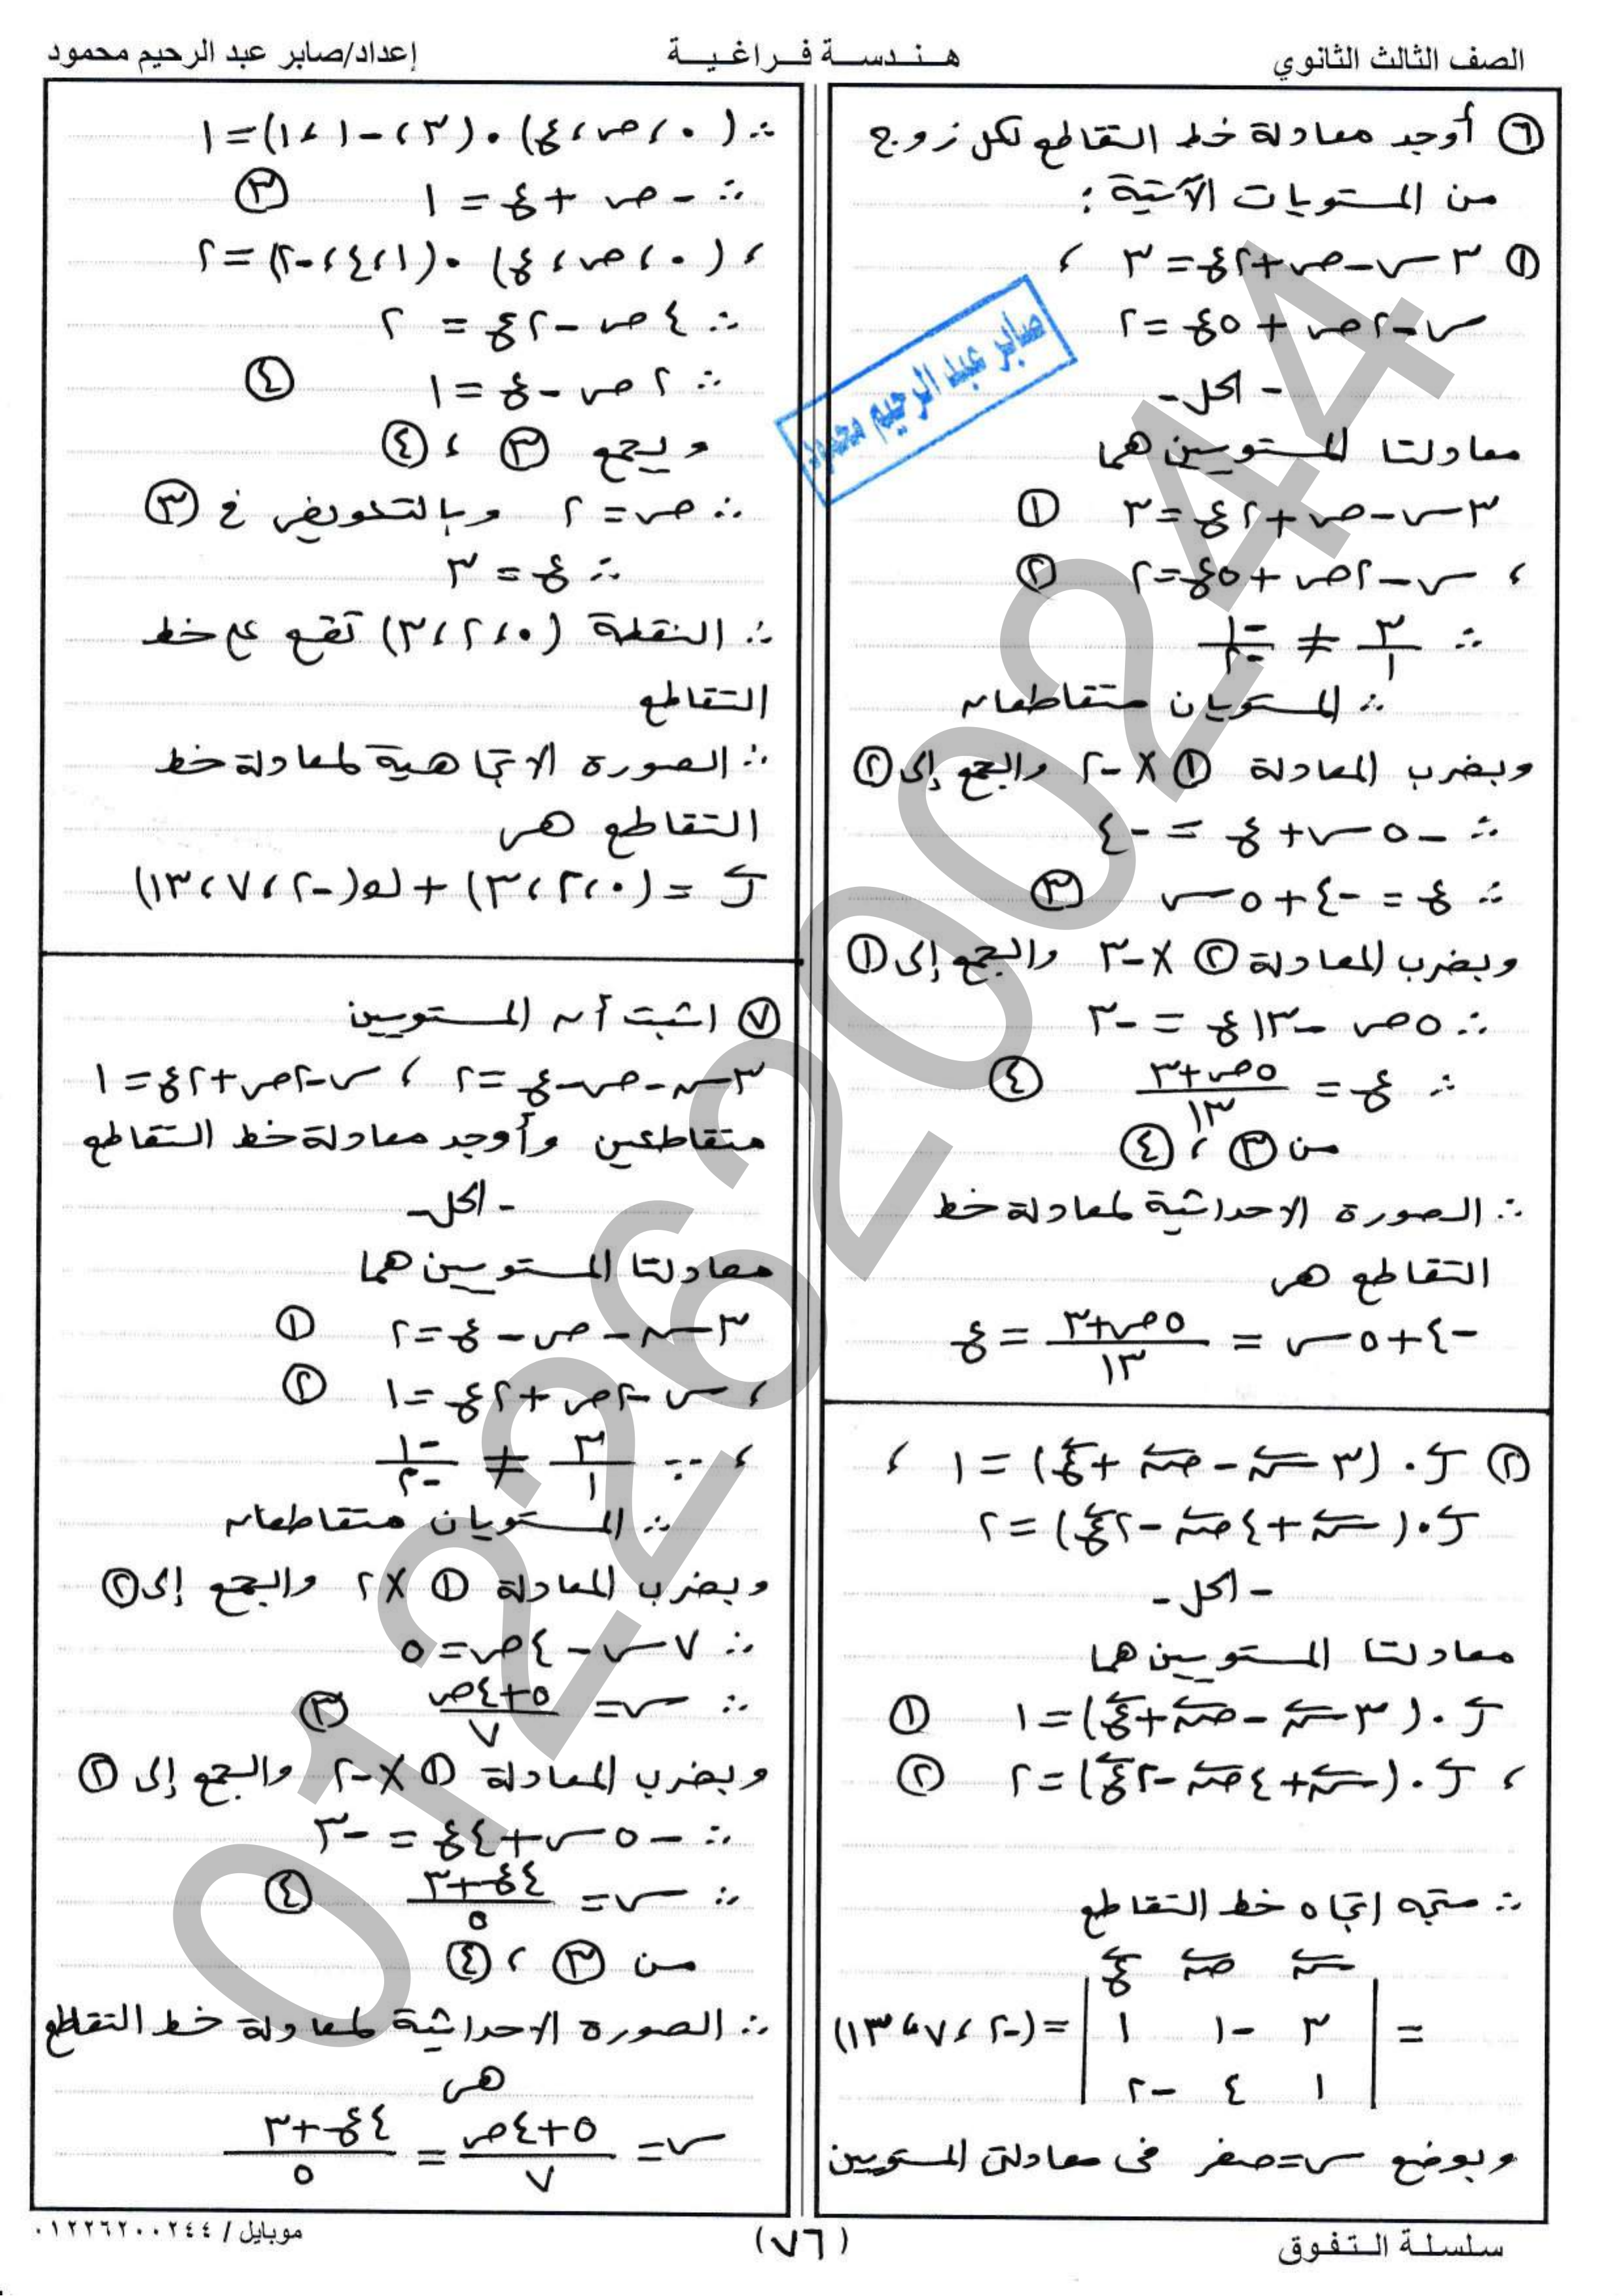 الصف الثالث الثانوي
هـنـدسـة فـراغـيـة
إعداد/صابر عبد الرحيم محمود
٦ أوجد معادلة خط التقاطع لكل زوج
من المستويات الآتية :
١ ٣س-ص+٢ع=٣ ،
س-٢ص+٥ع=٢
- الحل -
معادلتا المستويين هما
٣س-ص+٢ع=٣ ١
، س-٢ص+٥ع=٢ ٢
∵ ٣/١ ≠ -١/-٢
∴ المستويان متقاطعان
وبضرب المعادلة ١ × -٢ والجمع إلى ٢
∴ -٥س+ع = -٤
∴ ع = -٤+٥س ٣
وبضرب المعادلة ٢ × -٣ والجمع إلى ١
∴ ٥ص -١٣ع = -٣
∴ ع = ٥ص+٣/١٣ ٤
من ٣ ، ٤
∴ الصورة الاحداثية لمعادلة خط
التقاطع هى
-٤+٥س = ٥ص+٣/١٣ = ع
٢ ر . (٣س-ص+ع) = ١ ،
ر . (س+٤ص-٢ع) = ٢
- الحل -
معادلتا المستويين هما
ر . (٣س-ص+ع) = ١ ١
، ر . (س+٤ص-٢ع) = ٢ ٢
∴ متجه اتجاه خط التقاطع
س ص ع
= | ٣ -١ ١ | = (-٢ ، ٧ ، ١٣)
١ ٤ -٢
وبوضع س=صفر فى معادلتى المستويين
∴ (٠ ، ص ، ع) . (٣ ، -١ ، ١) = ١
∴ -ص + ع = ١ ٣
، (٠ ، ص ، ع) . (١ ، ٤ ، -٢) = ٢
∴ ٤ص -٢ع = ٢
∴ ٢ص -ع = ١ ٤
وبجمع ٣ ، ٤
∴ ص = ٢ وبالتعويض فى ٣
∴ ع = ٣
∴ النقطة (٠ ، ٢ ، ٣) تقع على خط
التقاطع
∴ الصورة الاتجاهية لمعادلة خط
التقاطع هى
ر = (٠ ، ٢ ، ٣) + ك(-٢ ، ٧ ، ١٣)
٧ اثبت أن المستويين
٣س-ص-ع=٢ ، س-٢ص+٢ع=١
متقاطعين وأوجد معادلة خط التقاطع
- الحل -
معادلتا المستويين هما
٣س-ص-ع=٢ ١
، س-٢ص+٢ع=١ ٢
، ∵ ٣/١ ≠ -١/-٢
∴ المستويان متقاطعان
وبضرب المعادلة ١ × ٢ والجمع إلى ٢
∴ ٧س-٤ص=٥
∴ س= ٥+٤ص/٧ ٣
وبضرب المعادلة ١ × -٢ والجمع إلى ٢
∴ -٥س+٤ع = -٣
∴ س= ٤ع+٣/٥ ٤
من ٣ ، ٤
∴ الصورة الاحداثية لمعادلة خط التقاطع
هى
س= ٥+٤ص/٧ = ٤ع+٣/٥
صابر عبد الرحيم محمود
01226200244
سلسلة التفوق
(٧٦)
موبايل / ٠١٢٢٦٢٠٠٢٤٤